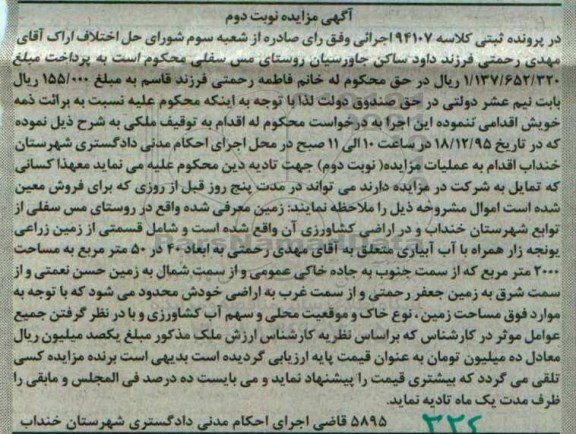 آگهی مزایده نوبت دوم
در پرونده ثبتی کلاسه ۹۴۱۰۷ اجرائی وفق رای صادره از شعبه سوم شورای حل اختلاف اراک آقای
مهدی رحمتی فرزند داود ساکن جاورسیان روستای مس سفلی محکوم است به پرداخت مبلغ
۱/۱۳۷/۶۵۲/۳۲۰ ریال در حق محکوم له خانم فاطمه رحمتی فرزند قاسم به مبلغ ۱۵۵/۰۰۰ ریال
بابت نیم عشر دولتی در حق صندوق دولت لذا با توجه به اینکه محکوم علیه نسبت به برائت ذمه
خویش اقدامی ننموده این اجرا به درخواست محکوم له اقدام به توقیف ملکی به شرح ذیل نموده
که در تاریخ ۱۸/۱۲/۹۵ در ساعت ۱۰ الی ۱۱ صبح در محل اجرای احکام مدنی دادگستری شهرستان
خنداب اقدام به عملیات مزایده( نوبت دوم) جهت تادیه دین محکوم علیه می نماید معهذا کسانی
که تمایل به شرکت در مزایده دارند می تواند در مدت پنج روز قبل از روزی که برای فروش معین
شده است اموال مشروحه ذیل را ملاحظه نمایند: زمین معرفی شده واقع در روستای مس سفلی از
توابع شهرستان خنداب و در اراضی کشاورزی آن واقع شده است و شامل قسمتی از زمین زراعی
یونجه زار همراه با آب آبیاری متعلق به آقای مهدی رحمتی به ابعاد ۴۰ در ۵۰ متر مربع به مساحت
۲۰۰۰ متر مربع که از سمت جنوب به جاده خاکی عمومی و از سمت شمال به زمین حسن نعمتی و از
سمت شرق به زمین جعفر رحمتی و از سمت غرب به اراضی خودش محدود می شود که با توجه به
موارد فوق مساحت زمین ، نوع خاک و موقعیت محلی و سهم آب کشاورزی و با در نظر گرفتن جمیع
عوامل موثر در کارشناس که براساس نظریه کارشناس ارزش ملک مذکور مبلغ یکصد میلیون ریال
معادل ده میلیون تومان به عنوان قیمت پایه ارزیابی گردیده است بدیهی است برنده مزایده کسی
تلقی می گردد که بیشتری قیمت را پیشنهاد نماید و می بایست ده درصد فی المجلس و مابقی را
ظرف مدت یک ماه تادیه نماید.
۵۸۹۵ قاضی اجرای احکام مدنی دادگستری شهرستان خنداب